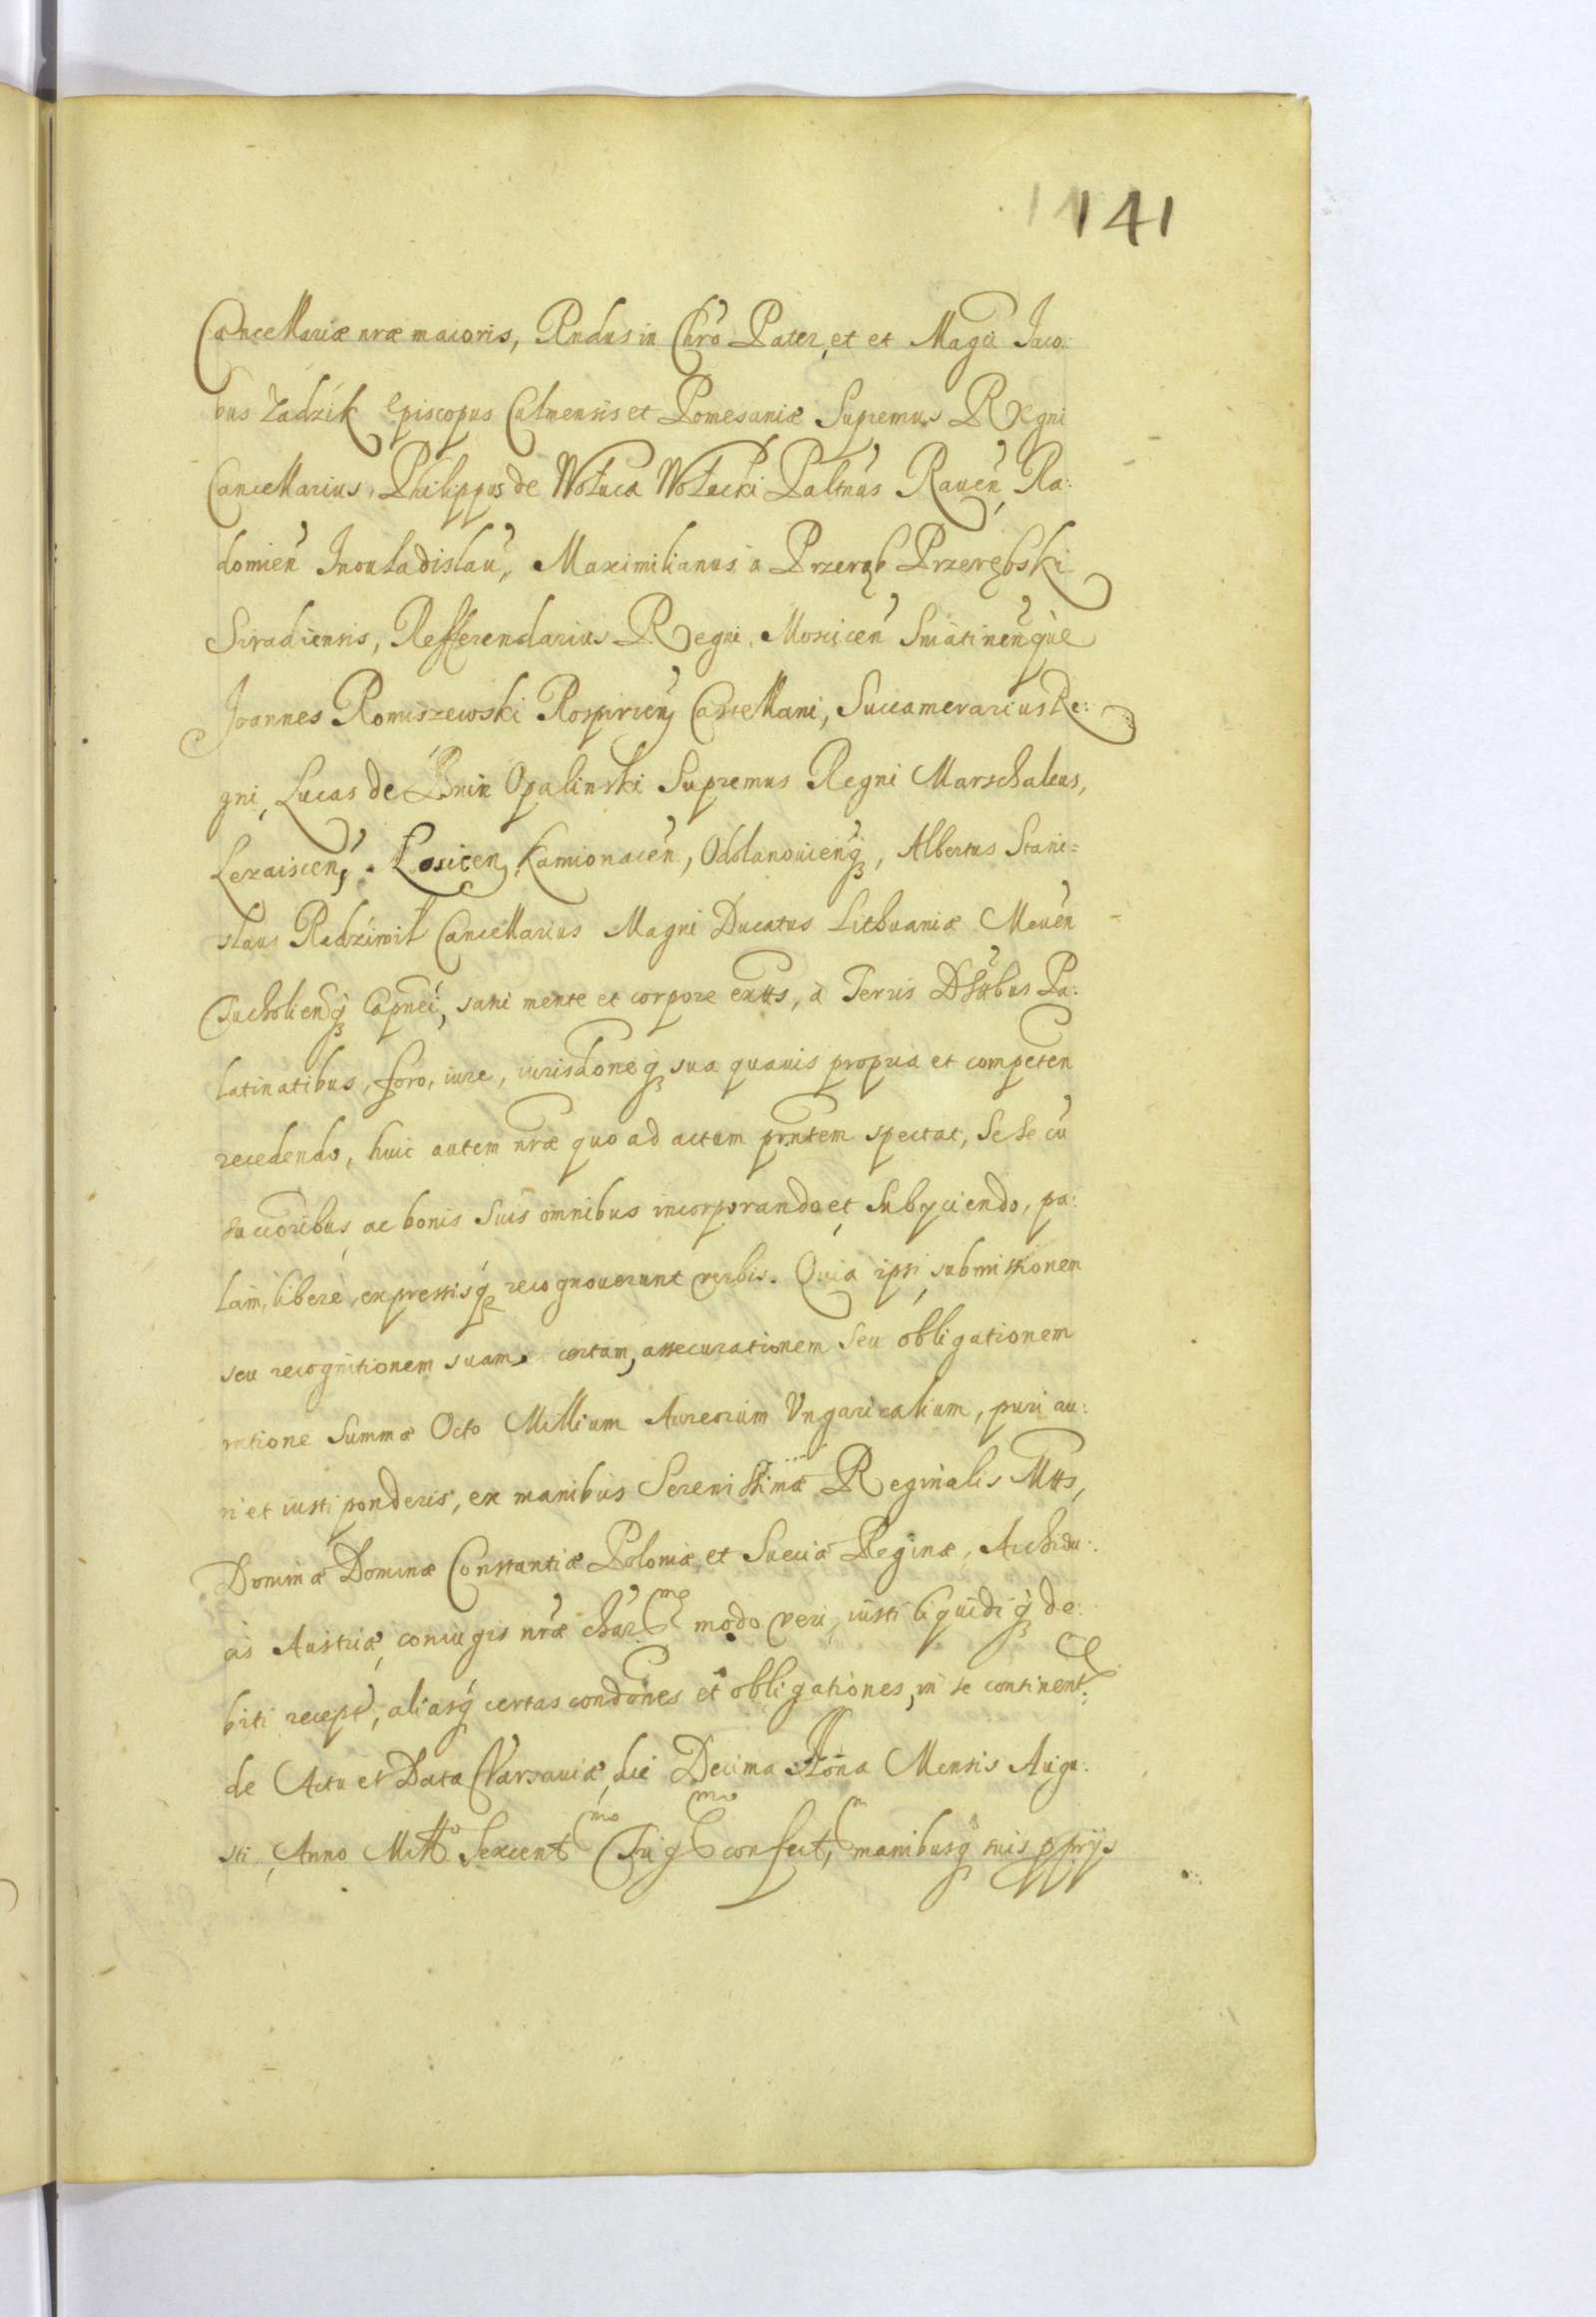 141
Cancellariæ nræ maioris, Rndus in Chro Pater, et et Magci Jaco:
bus Zadzik Episcopus Culmensis et Pomesaniæ Supremus Regni
Cancellarius, Philippus de Wołuca Wołucki Paltnus Rauen, Ra:
domien Inouladislau, Maximilianus à Przeręb Przerębski
Siradiensis, Refferendarius Regni, Moscicen Sniatinenque
Joannes Romiszewski Rospirien Castellani, Succamerarius Re:
gni, Lucas de Bnin Opalinski Supremus Regni Marschalcus,
Lezaiscen, Losicen, Kamionacen, Odolanouienq, Albertus Stani=
slaus Radziwił Cancellarius Magni Ducatus Lithuaniæ Meuen
Tucholienq Capnei, sani mente et corpore exntts, à Terris Dstrbus Pa:
latinatibus, foro, iure, iurisdoneq sua quauis propria et competen
recedendo, huic autem nræ quo ad actum prntem spectat, Se se cu
succoribus ac bonis suis omnibus incorporando et Subyciendo, pa:
lam, libere, expressisq recognouerunt verbis. Quia ipsi submissionem
seu recognitionem suam certam, assecurationem seu obligationem
ratione Summæ Octo Millium Aureorum Vngaricalium, puri au:
ri et iusti ponderis, ex manibus Serenissimæ Reginalis Mtts,
Dominæ Dominæ Constantiæ Poloniæ et Sueciæ Reginæ, Archidu:
cis Austriæ, coniugis nræ char me modo veri, iusti liquidiq de:
biti recept, aliasq certas condones et obligationes, in se continent:
de Actu et Data Varsauiæ, die Decima Nona Mensis Augu:
sti, Anno Millo Sexcent mo Trig mo confect, manibusq suis pprijs